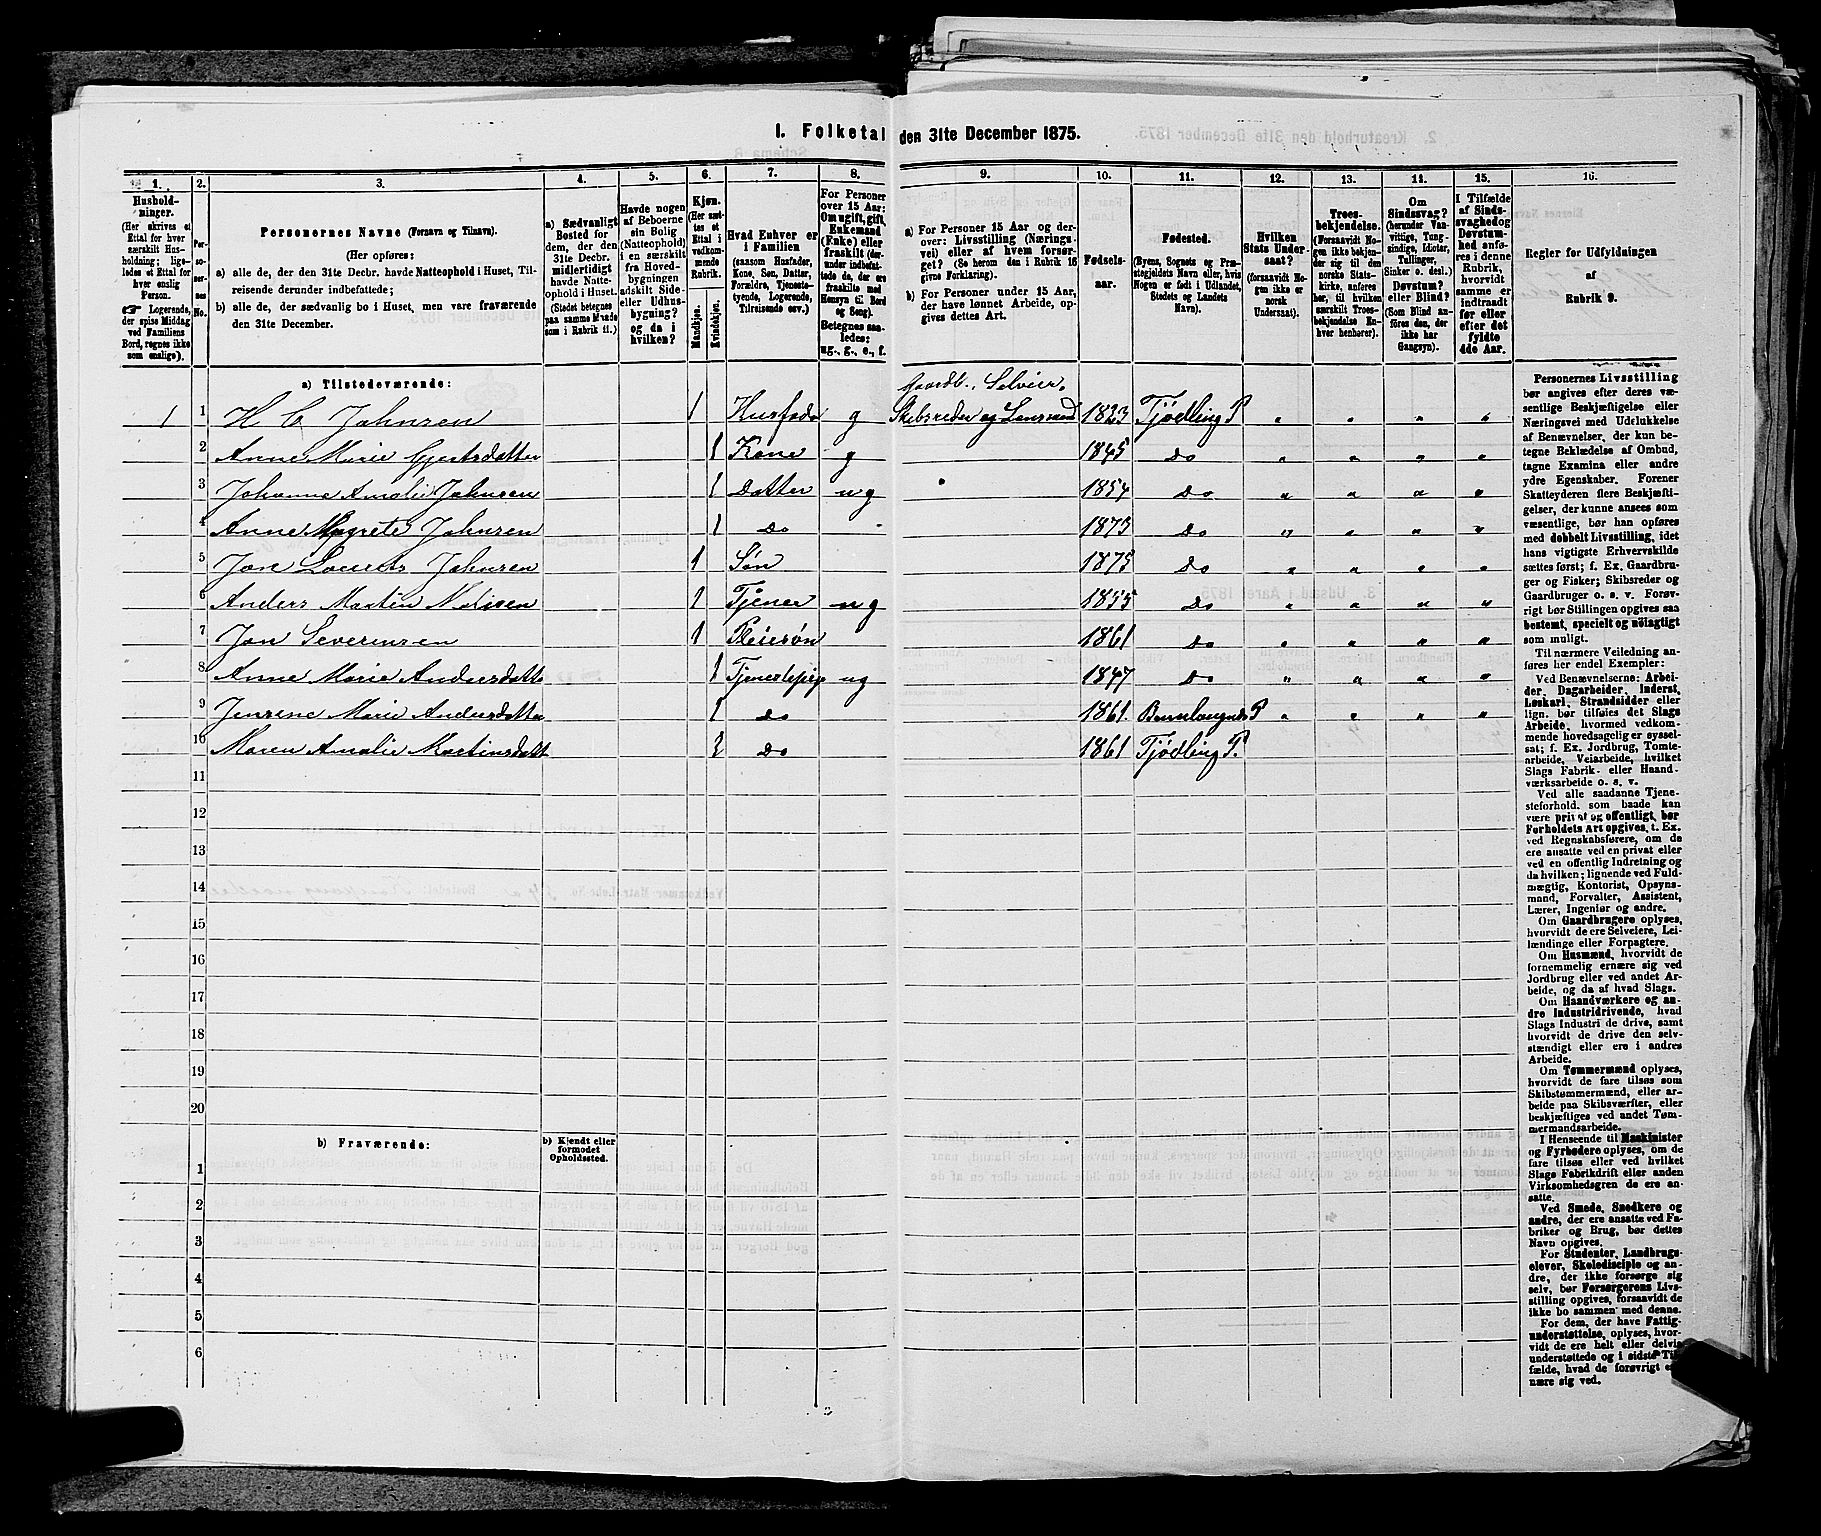 I. Folketal den 31te December 1875.
1. 2. 3. 4. 5. 6. 7. 8. 9. 10. 11. 12. 13. 14. 15. 16.
Husholdninger.
(Her skrives et
Ettal for hver
særskilt Husholdning;
ligeledes et Ettal for
hver enslig
Person.
☛ Logerende,
der spise Middag
ved Familiens
Bord, regnes ikke
som enslige).
Personernes No.
Personernes Navne (Fornavn og Tilnavn).
(Her opføres:
a) alle de, der den 31te Decbr. havde Natteophold i Huset, Tilreisende derunder indbefattede;
b) alle de, der sædvanlig bo i Huset, men vare fraværende
den 31te December.
a) Sædvanligt
Bosted for
dem, der den
31te Decbr.
midlertidigt
havde Natteophold
i Huset.
(Stedet betegnes
paa samme Maade
som i Rubrik 11.)
Havde nogen
af Beboerne
sin Bolig
(Natteophold)
i en særskilt
fra Hovedbygningen
adskilt Side-
eller Udhusbygning?
og da i
hvilken?
Kjøn.
(Her sættes
et
Ettal i
vedkommende
Rubrik.
Mandkjøn.
Kvindekjøn.
Hvad Enhver er
i Familien
(saasom Husfader,
Kone, Søn, Datter,
Forældre, Tjenestetyende,
Logerende,
Tilreisende osv.)
For Personer
over 15 Aar:
Om ugift, gift,
Enkemand
(Enke) eller
fraskilt (derunder
indbefattede
de, der ere
fraskilte med
Hensyn til Bord
og Seng).
Betegnes saaledes:
ug., g., e., f.
a) For Personer 15 Aar og derover:
Livsstilling (Næringsvei)
eller af hvem forsørget?
(Se herom den i Rubrik 16
givne Forklaring).
b) For Personer under 15 Aar,
der have lønnet Arbeide, opgives
dettes Art.
Fødselsaar.
Fødested.
(Byens, Sognets og Præstegjeldets
Navn eller, hvis
Nogen er født i Udlandet,
Stedets og Landets
Navn).
Hvilken
Stats Undersaat?
(forsaavidt Nogen
ikke er
norsk
Undersaat).
Troesbekjendelse.
(Forsaavidt Nogen
ikke bekjender
sig til den
norske Statskirke,
anføres
her, til hvilken
særskilt Troesbekjendelse
Enhver
henhører).
Om
Sindssvag?
(herunder Vanvittige,
Tungsindige,
Idioter,
Tullinger,
Sinker o. desl.)
Døvstum?
eller Blind?
(Som Blind anføres
den, der
ikke har
Gangsyn).
I Tilfælde
af Sindssvaghed
og
Døvstumhed
anføres
i denne
Rubrik,
hvorvidt
samme er
indtraadt
før eller
efter det
fyldte
4de Aar.
Regler for Udfyldningen
af
Rubrik 9.
a) Tilstedeværende:
Gaardb., Selveier,
1 1 H C Johnsen 1 Husfader g Skibsreder og Lensmand 1823 Tjødling P " " " "
2 Anne Marie Gjertsdatter 1 Kone g 1845 Do " " " "
3 Johanne Amalie Johnsen 1 Datter ug 1854 Do " " " "
4 Anne Magrete Johnsen 1 Do 1873 Do " " " "
5 Jon Lourits Johnsen 1 Søn 1875 Do " " " "
6 Anders Martin 1 Tjener ug 1855 Do " " " "
7 Jon Severinsen 1 Pleiesøn 1861 Do " " " "
8 Anne Marie Andersdatter 1 Tjenestepige ug 1847 Do " " " "
9 Jensene Marie Andersdatter 1 Do 1861 P " " " "
10 Maren Amalie Martinsdatt Do 1861 Tjødling P.
11
12
13
14
15
16
17
18
19
20
b) Fraværende:
b) Kjendt eller
formodet
Opholdssted.
1
2
3
4
5
6
Personernes Livsstilling
bør angives efter deres væsentlige
Beskjæftigelse eller
Næringsvei med Udelukkelse
af Benævnelser, der kun betegne
Beklædelse af Ombud,
tagne Examina eller andre
ydre Egenskaber. Forener
Skatteyderen flere Beskjæftigelser,
der kunne ansees som
væsentlige, bør han opføres
med dobbelt Livsstilling, idet
hans vigtigste Erhvervskilde
sættes først; f. Ex. Gaardbruger
og Fisker; Skibsreder og
Gaardbruger o. s. v. Forøvrigt
bør Stillingen opgives saa
bestemt, specielt og nøiagtigt
som muligt.
Til nærmere Veiledning anføres
her endel Exempler:
Ved Benævnelserne: Arbeider,
Dagarbeider, Inderst,
Løskarl, Strandsidder eller
lign. bør tilføies det Slags
Arbeide, hvormed vedkommende
hovedsagelig er sysselsat;
f. Ex. Jordbrug, Tomtearbeide,
Veiarbeide, hvilket
Slags Fabrik- eller Haandværksarbeide
o. s. v.
Ved alle saadanne Tjenesteforhold,
som baade kan
være privat og offentligt, bør
Forholdets Art opgives, t. Ex.
ved Regnskabsførere, om de
ere ansatte ved en privat eller
ved en offentlig Indretning og
da hvilken; lignende ved Fuldmægtig,
Kontorist, Opsynsmand,
Forvalter, Assistent,
Lærer, Ingeniør og andre.
Om Gaardbrugere oplyses,
hvorvidt de ere Selveiere, Leilændinge
eller Forpagtere.
Om Husmænd, hvorvidt de
fornemmelig ernære sig ved
Jordbrug eller ved andet Arbeide,
og da af hvad Slags.
Om Haandværkere og andre
Industridrivende, hvad
Slags Industri de drive, samt
hvorvidt de drive den selvstændigt
eller ere i andres
Arbeide.
Om Tømmermænd oplyses,
hvorvidt de fare tilsøs som
Skibstømmermænd, eller arbeide
paa Skibsværfter, eller
beskjæftiges ved andet Tømmermandsarbeide.
I Henseende til Maskinister
og Fyrbødere oplyses, om de
fare tilsøs eller ved hvilket
Slags Fabrikdrift eller anden
Virksomhedsgren de ere ansatte.
Ved Smede, Snedkere og
andre, der ere ansatte ved Fabriker
og Brug, bør dettes
Navn opgives.
For Studenter, Landbrugselever,
Skoledisciple og andre,
der ikke forsørge sig
selv, bør Forsørgerens Livsstilling
opgives, forsaavidt de
ikke bo sammen med denne.
For dem, der have Fattigunderstøttelse,
oplyses, hvorvidt
de ere helt eller delvis
understøttede og i sidste Tilfælde,
hvad de forøvrigt ernære
sig ved.